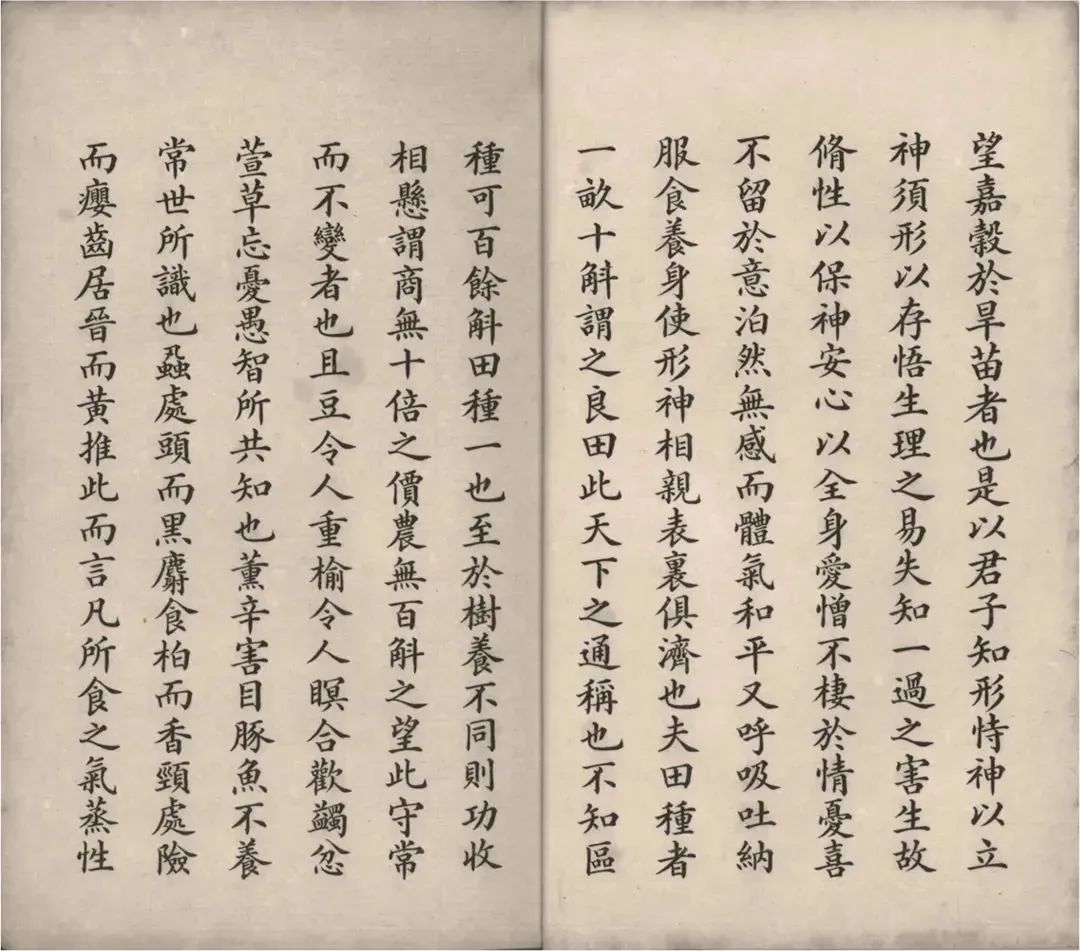 望嘉穀於旱苗者也是以君子知形恃神以立
神須形以存悟生理之易失知一過之害生故
脩性以保神安心以全身愛憎不棲於情憂喜
不留於意泊然無感而體氣和平又呼吸吐納
服食養身使形神相親表裏俱濟也夫田種者
一畝十斛謂之良田此天下之通稱也不知區
種可百餘斛田種一也至於樹養不同則功收
相懸謂商無十倍之價農無百斛之望此守常
而不變者也且豆令人重榆令人瞑合歡蠲忿
萱草忘憂愚智所共知也薰辛害目豚魚不養
常世所識也蝨處頭而黑麝食柏而香頸處險
而癭齒居晉而黃推此而言凡所食之氣蒸性